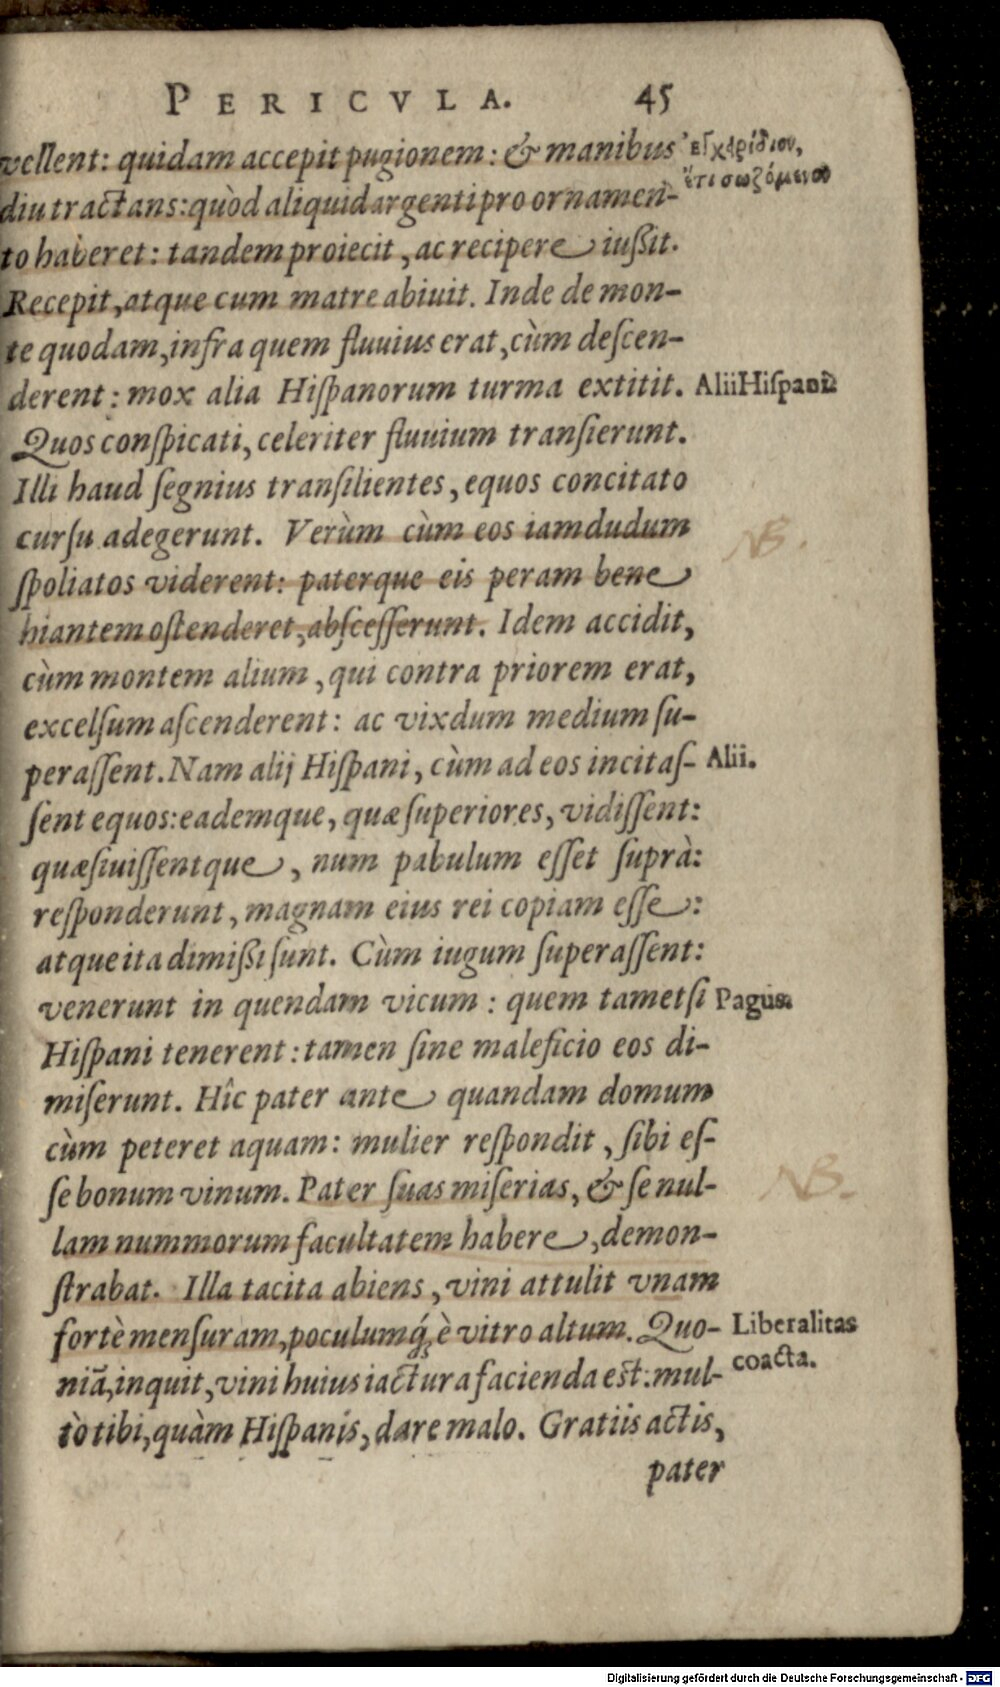 PERICVLA. 45
vellent: quidam accepit pugionem: & manibus
diu tractans: quòd aliquid argenti pro ornamen-
to haberet: tandem proiecit, ac recipere iußit.
Recepit, atque cum matre abiuit. Inde de mon-
te quodam, infra quem fluuius erat, cùm deſcen-
derent: mox alia Hiſpanorum turma extitit.
Quos conſpicati, celeriter fluuium tranſierunt.
Illi haud ſegnius tranſilientes, equos concitato
curſu adegerunt. Verùm cùm eos iamdudum
ſpoliatos viderent: paterque eis peram bene
hiantem oſtenderet, abſceſſerunt. Idem accidit,
cùm montem alium, qui contra priorem erat,
excelſum aſcenderent: ac vixdum medium ſu-
peraſſent. Nam alij Hiſpani, cùm ad eos incitaſ-
ſent equos: eademque, quæ ſuperiores, vidiſſent:
quæſiuiſſentque, num pabulum eſſet ſuprà:
reſponderunt, magnam eius rei copiam eſſe:
atque ita dimißi ſunt. Cùm iugum ſuperaſſent:
venerunt in quendam vicum: quem tametſi
Hiſpani tenerent: tamen ſine maleficio eos di-
miſerunt. Hîc pater ante quandam domum
cùm peteret aquam: mulier reſpondit, ſibi eſ-
ſe bonum vinum. Pater ſuas miſerias, & ſe nul-
lam nummorum facultatem habere, demon-
ſtrabat. Illa tacita abiens, vini attulit vnam
fortè menſuram, poculumq́, è vitro altum. Quo-
niã, inquit, vini huius iactura facienda est: mul-
tò tibi, quàm Hiſpanis, dare malo. Gratiis actis,
pater
ἔτι σωζόμενον
Alii Hiſpani.
NB.
Alii.
Pagus.
NB.
Liberalitas
coacta.